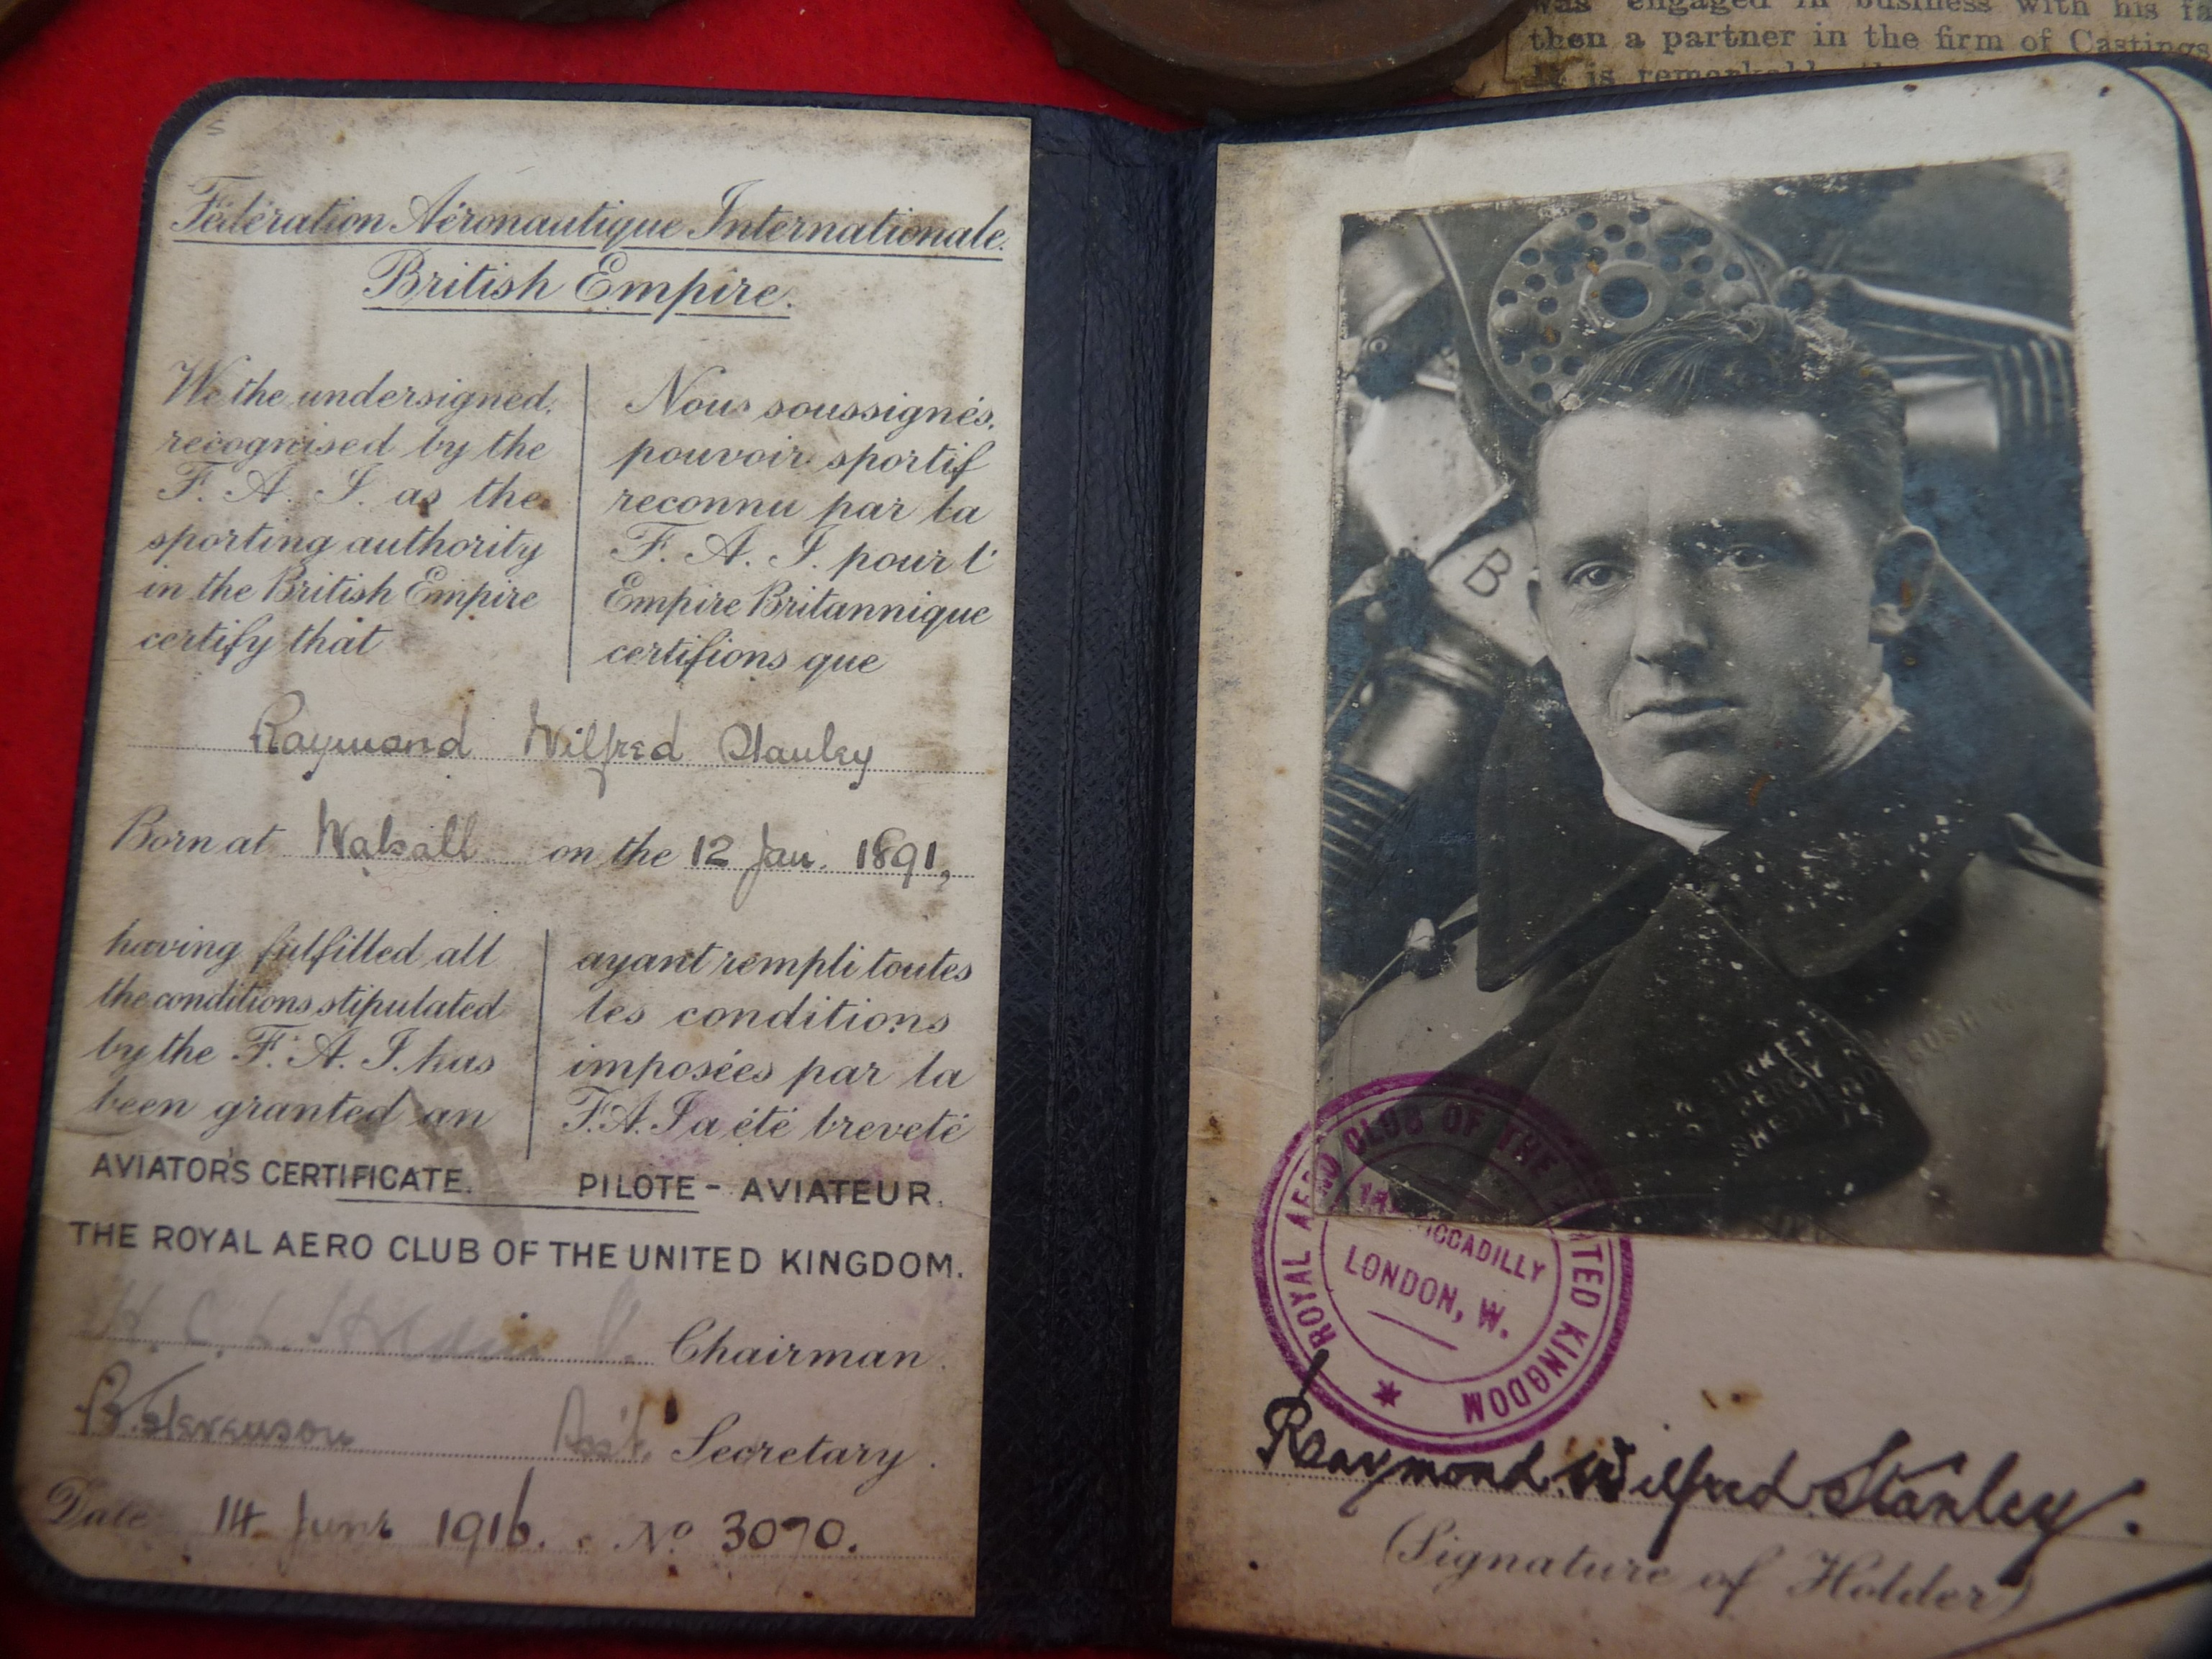 was engaged in business with his
then a partner in the firm of Castings
is
Fédération Aéronautique Internationale.
British Empire.
We the undersigned,
recognised by the
F. A. I. as the
sporting authority
in the British Empire
certify that
Nous soussignés,
pouvoir sportif
reconnu par la
F. A. I. pour l'
Empire Britannique
certifions que
Raymond Wilfred Stanley
Born at Walsall on the 12 Jan. 1891,
having fulfilled all
the conditions stipulated
by the F. A. I. has
been granted an
AVIATOR'S CERTIFICATE.
ayant rempli toutes
les conditions
imposées par la
F.A.I a été breveté
PILOTE - AVIATEUR.
THE ROYAL AERO CLUB OF THE UNITED KINGDOM.
Chairman.
B. Stevenson Asst. Secretary.
Date 14 June 1916. No 3070.
B
ROYAL AERO CLUB OF THE UNITED KINGDOM
PICCADILLY
LONDON, W.
Raymond Wilfred Stanley.
(Signature of Holder)